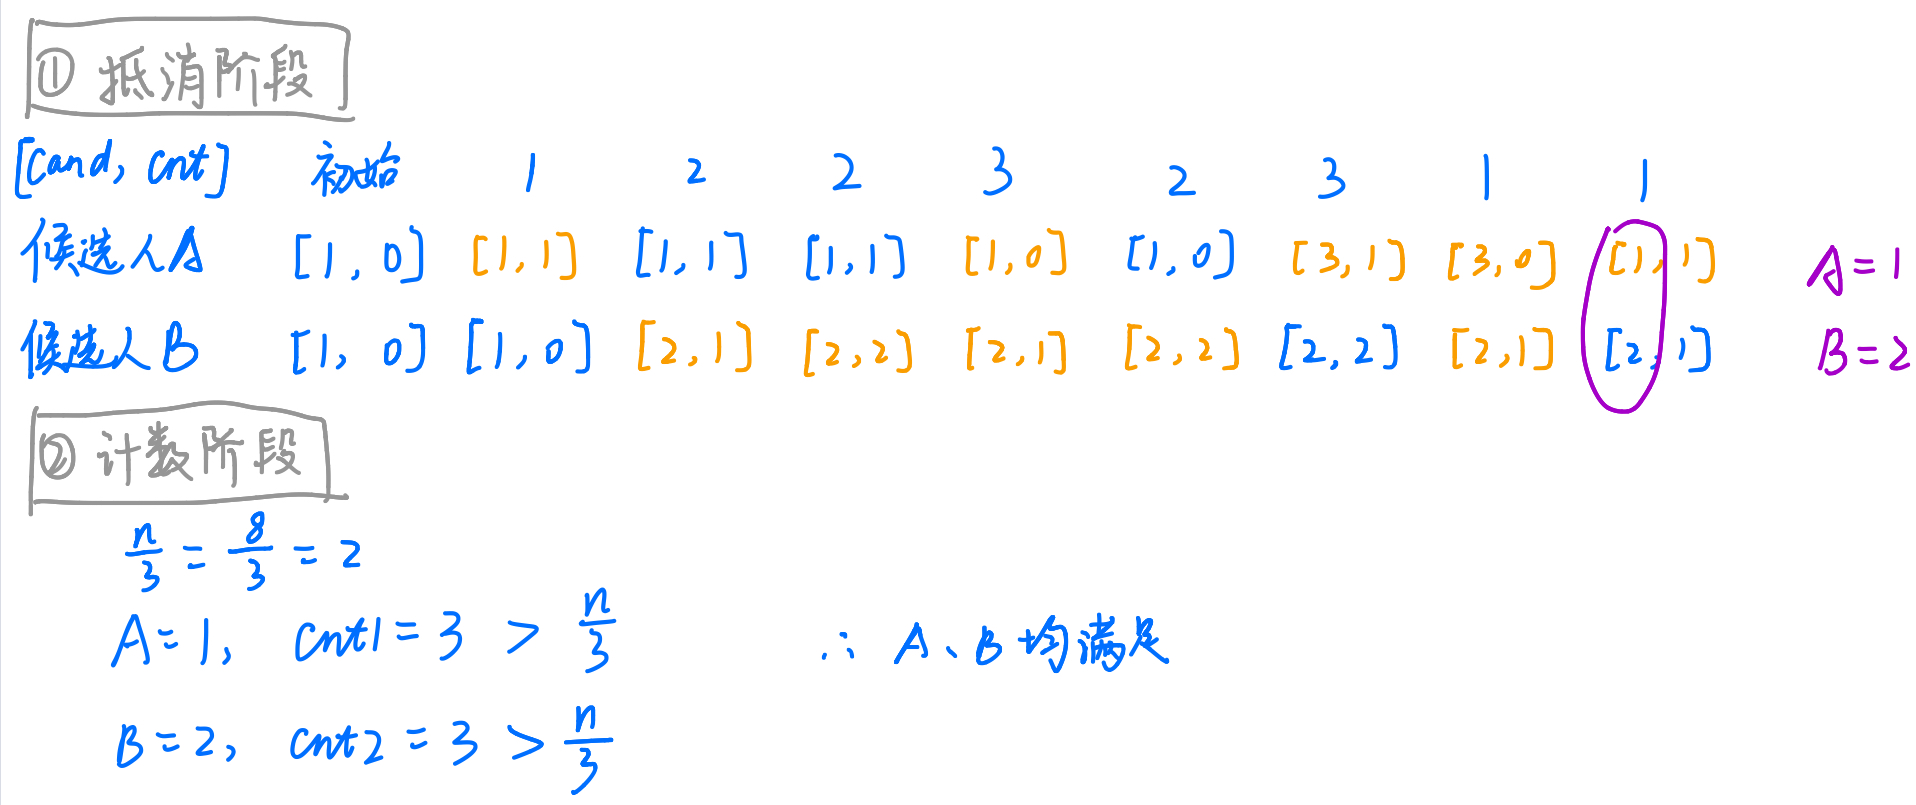 ① 抵消阶段
[cand, cnt] 初始 1 2 2 3 2 3 1 1
候选人A [1, 0] [1, 1] [1, 1] [1, 1] [1, 0] [1, 0] [3, 1] [3, 0] [1, 1] A=1
候选人B [1, 0] [1, 0] [2, 1] [2, 2] [2, 1] [2, 2] [2, 2] [2, 1] [2, 1] B=2
② 计数阶段
n/3 = 8/3 = 2
A=1, cnt1=3 > n/3 ∴ A、B均满足
B=2, cnt2=3 > n/3